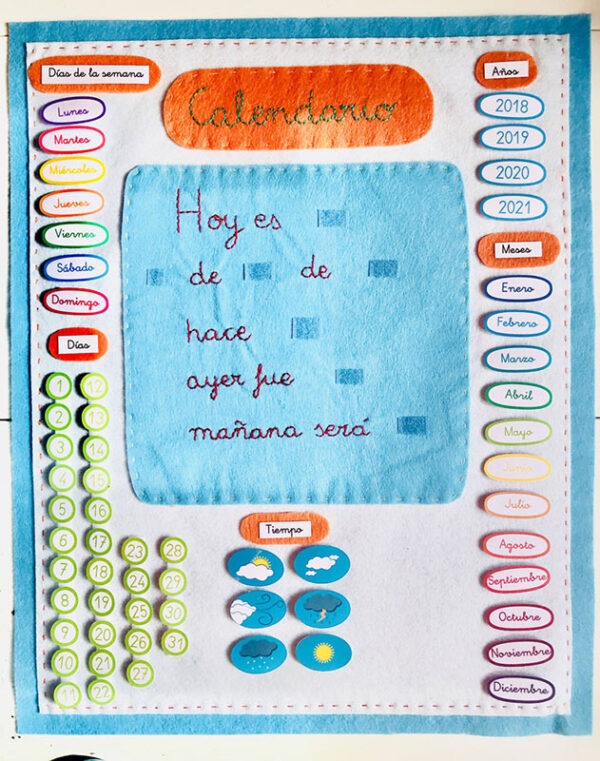 Calendario
Días de la semana
Lunes
Martes
Miércoles
Jueves
Viernes
Sábado
Domingo
Días
1
2
3
4
5
6
7
8
9
10
11
12
13
14
15
16
17
18
19
20
21
22
23
24
25
26
27
28
29
30
31
Hoy es
de de
hace
ayer fue
mañana será
Tiempo
Años
2018
2019
2020
2021
Meses
Enero
Febrero
Marzo
Abril
Mayo
Junio
Julio
Agosto
Septiembre
Octubre
Noviembre
Diciembre